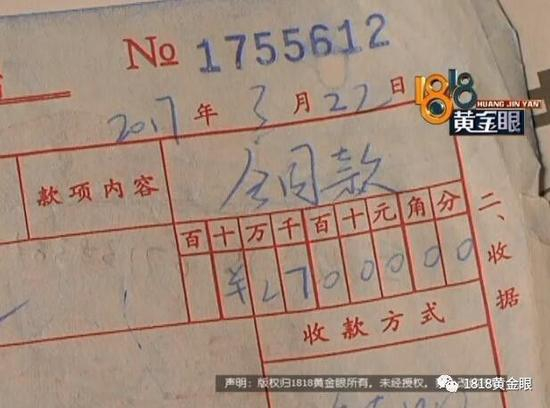 No 1755612
2017年3月22日
1818
HUANG JIN YAN
黄金眼
款项内容
合同款
百十万千百十元角分
¥2700000
二、收据
收款方式
声明：版权归1818黄金眼所有，未经授权，
1818黄金眼